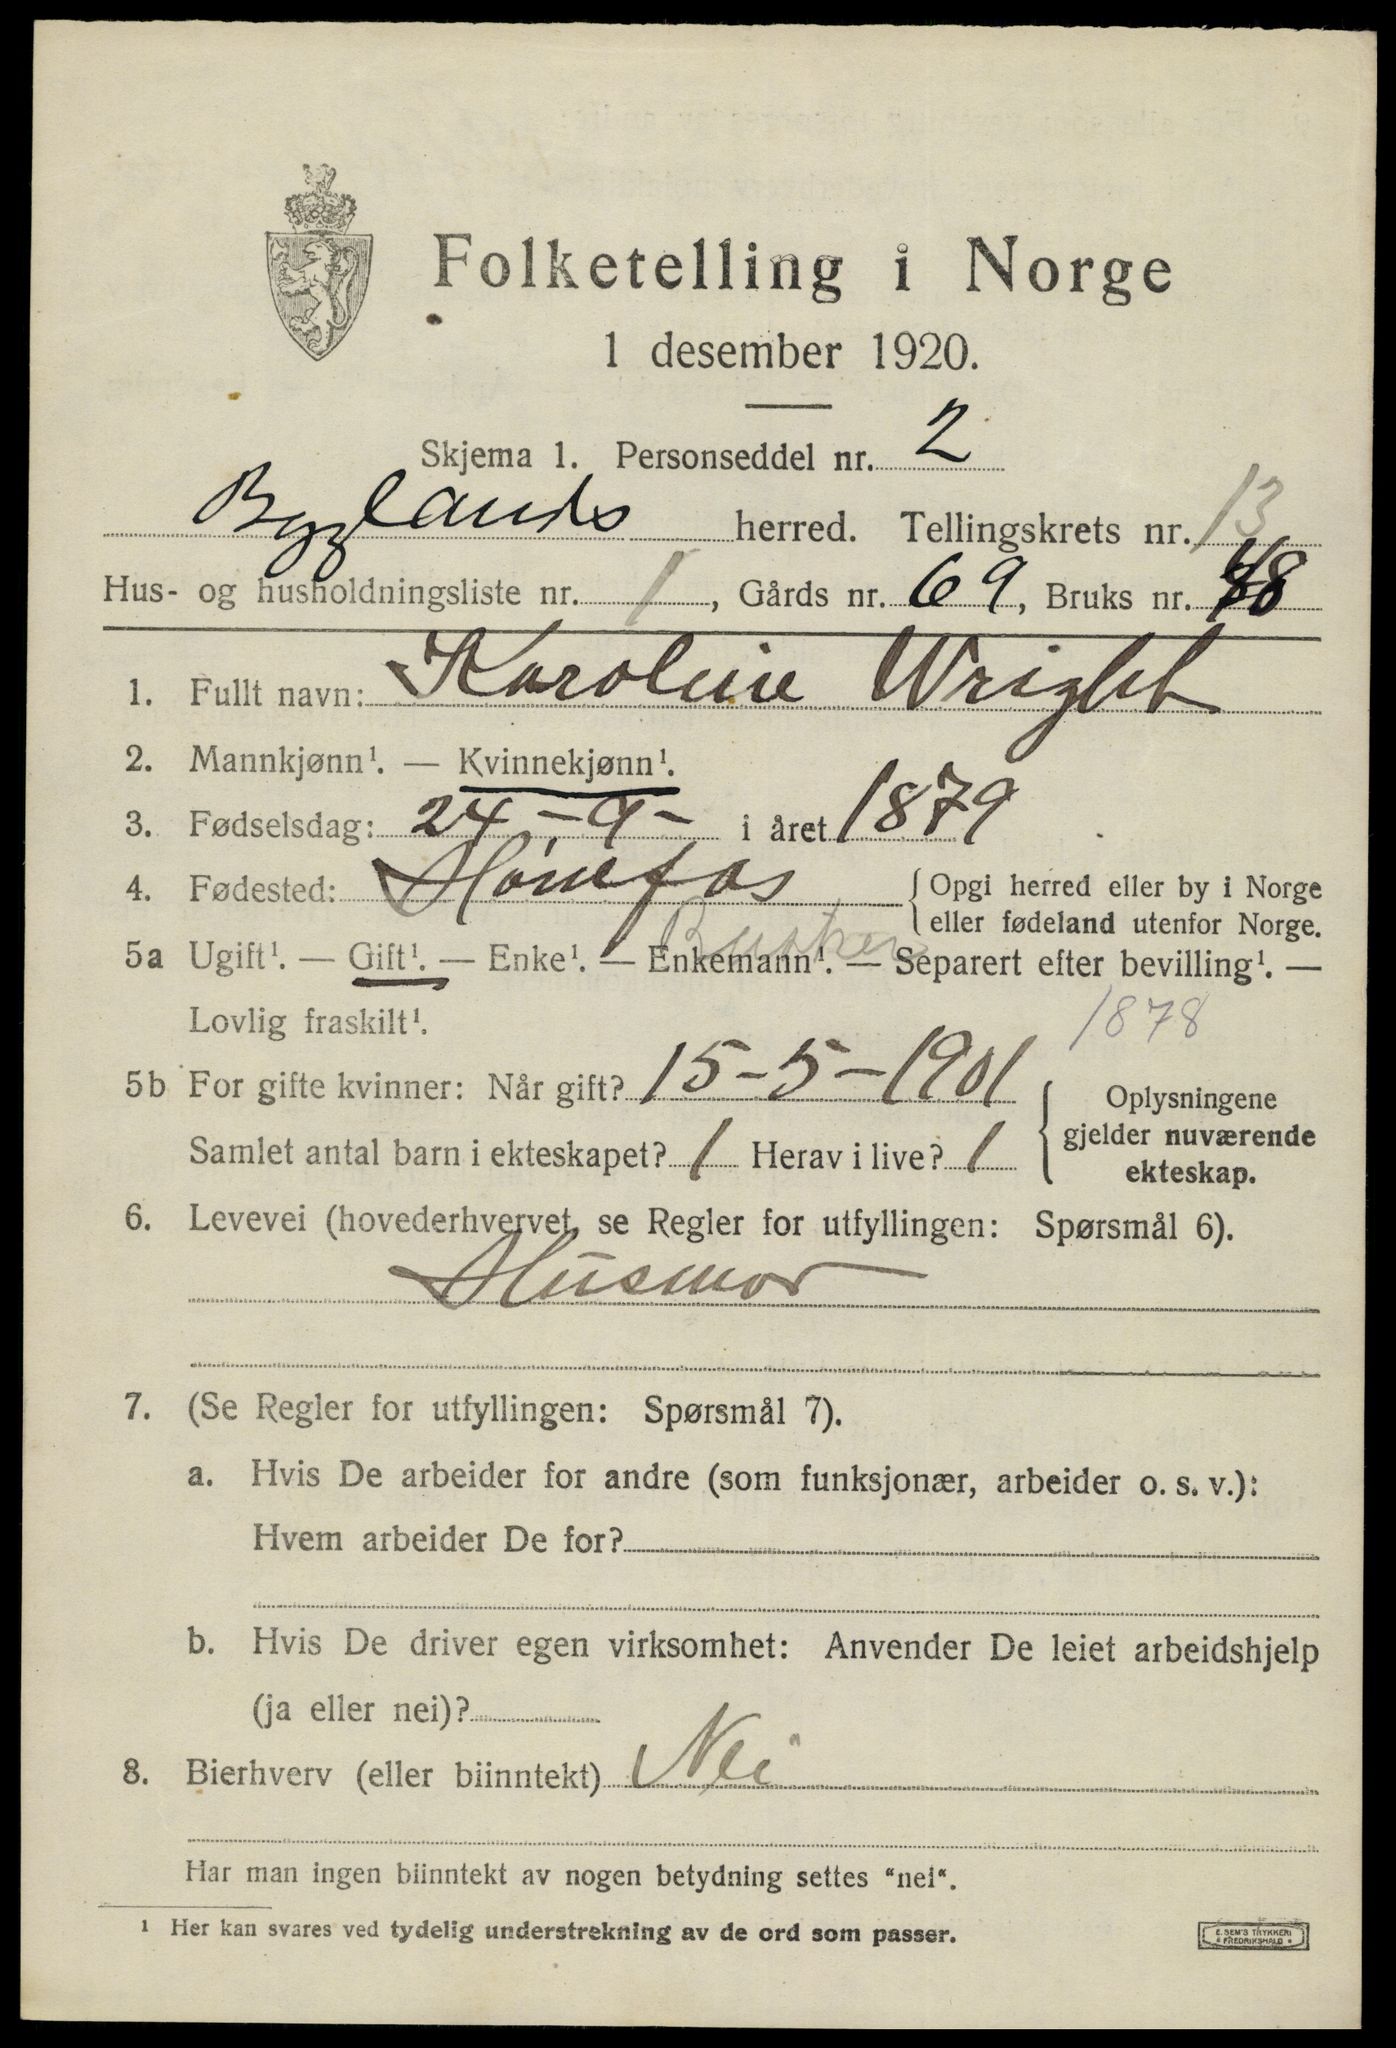 Folketelling i Norge
1 desember 1920.
Skjema 1. Personseddel nr. 2
Byglands herred. Tellingskrets nr. 13
Hus- og husholdningsliste nr. 1, Gårds nr. 69, Bruks nr. 48
1. Fullt navn: Karoline Wright
2. Mannkjønn¹. — Kvinnekjønn¹.
3. Fødselsdag: 24 - 9 - i året 1879
4. Fødested: Hønefos { Opgi herred eller by i Norge
eller fødeland utenfor Norge.
Busker
5a Ugift¹. — Gift¹. — Enke¹. — Enkemann¹. — Separert efter bevilling¹. —
Lovlig fraskilt¹. 1878
5b For gifte kvinner: Når gift? 15-5-1901 { Oplysningene
gjelder nuværende
ekteskap.
Samlet antal barn i ekteskapet? 1 Herav i live? 1
6. Levevei (hovederhvervet, se Regler for utfyllingen: Spørsmål 6).
Husmor
7. (Se Regler for utfyllingen: Spørsmål 7).
a. Hvis De arbeider for andre (som funksjonær, arbeider o. s. v.):
Hvem arbeider De for?
b. Hvis De driver egen virksomhet: Anvender De leiet arbeidshjelp
(ja eller nei)?
8. Bierhverv (eller biinntekt) Nei
Har man ingen biinntekt av nogen betydning settes "nei".
¹ Her kan svares ved tydelig understrekning av de ord som passer.
E. SEM'S TRYKKERI
FREDRIKSHALD